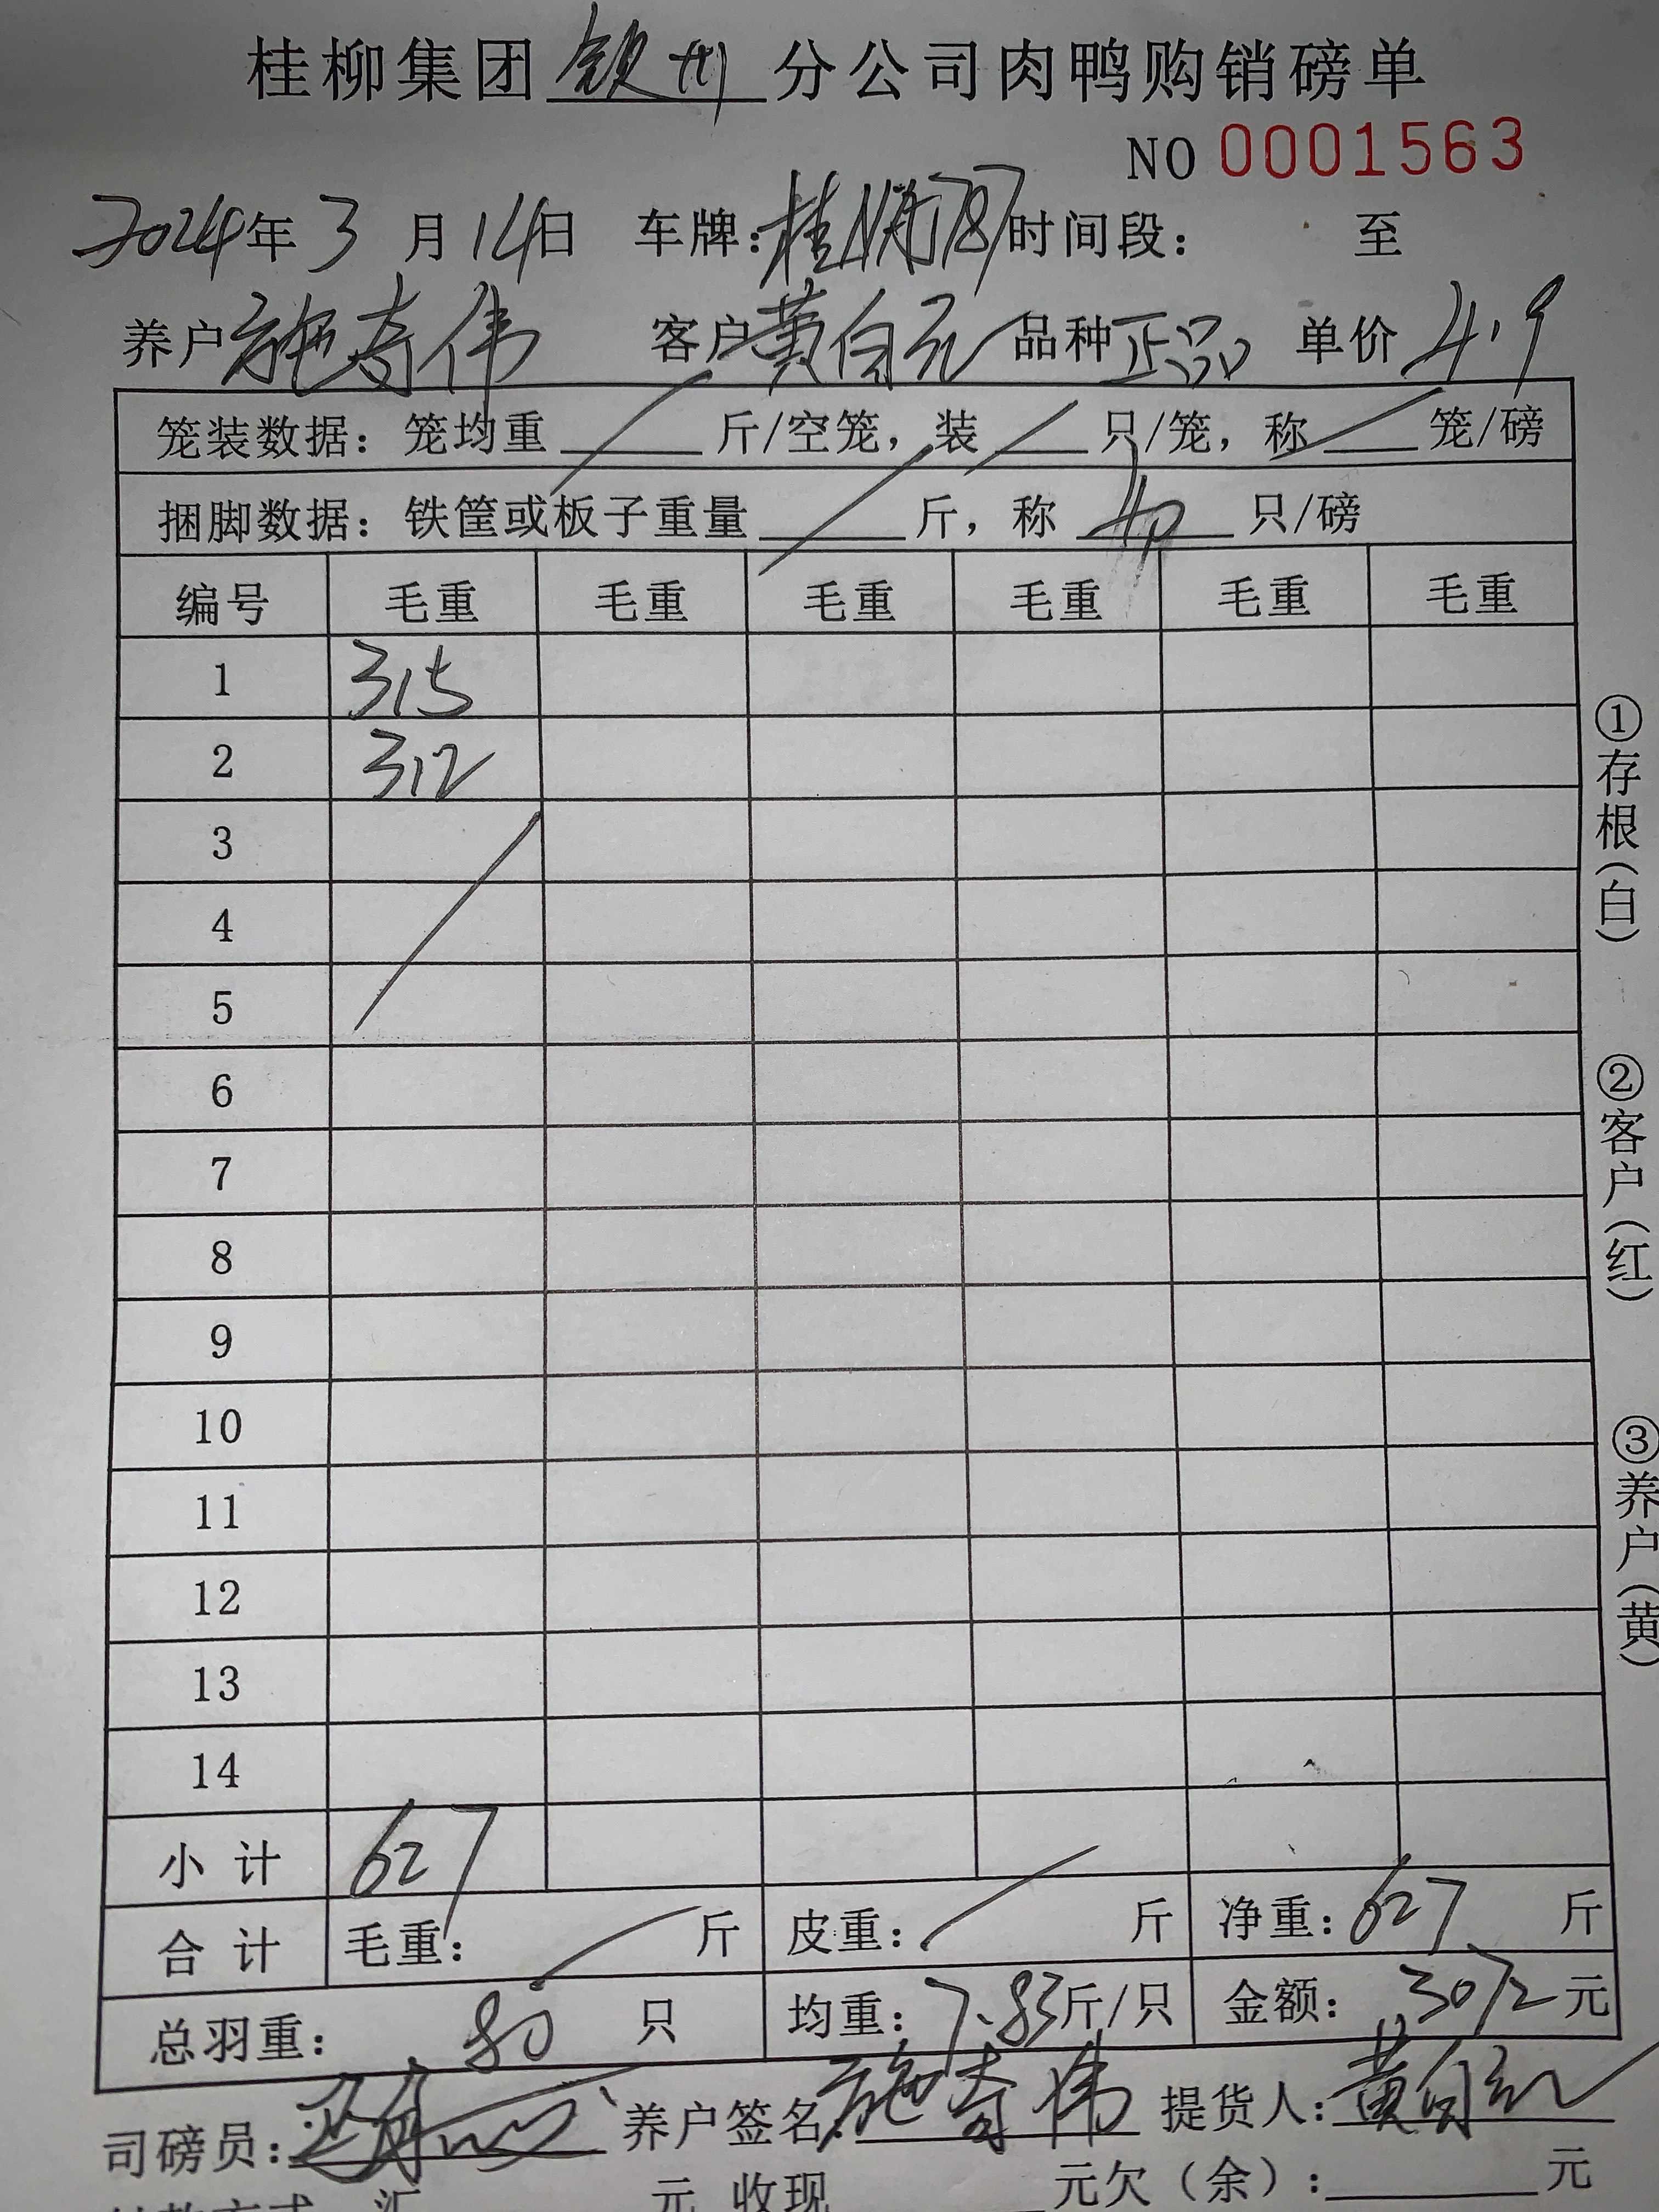 桂柳集团钦州分公司肉鸭购销磅单
NO 0001563
2024年3月14日 车牌:桂 787 时间段: 至
养户 施奇伟 客户 黄自元 品种 正品 单价 4.9
笼装数据: 笼均重 斤/空笼, 装 只/笼, 称 笼/磅
捆脚数据: 铁筐或板子重量 斤, 称 40 只/磅
编号 毛重 毛重 毛重 毛重 毛重 毛重
1 315
2 312
3
4
5
6
7
8
9
10
11
12
13
14
小计 627
合计 毛重: 斤 皮重: 斤 净重: 627 斤
总羽重: 80 只 均重: 7.83 斤/只 金额: 3072 元
司磅员: 养户签名: 施奇伟 提货人: 黄自元
元 收现 元欠(余): 元
①存根(白) ②客户(红) ③养户(黄)